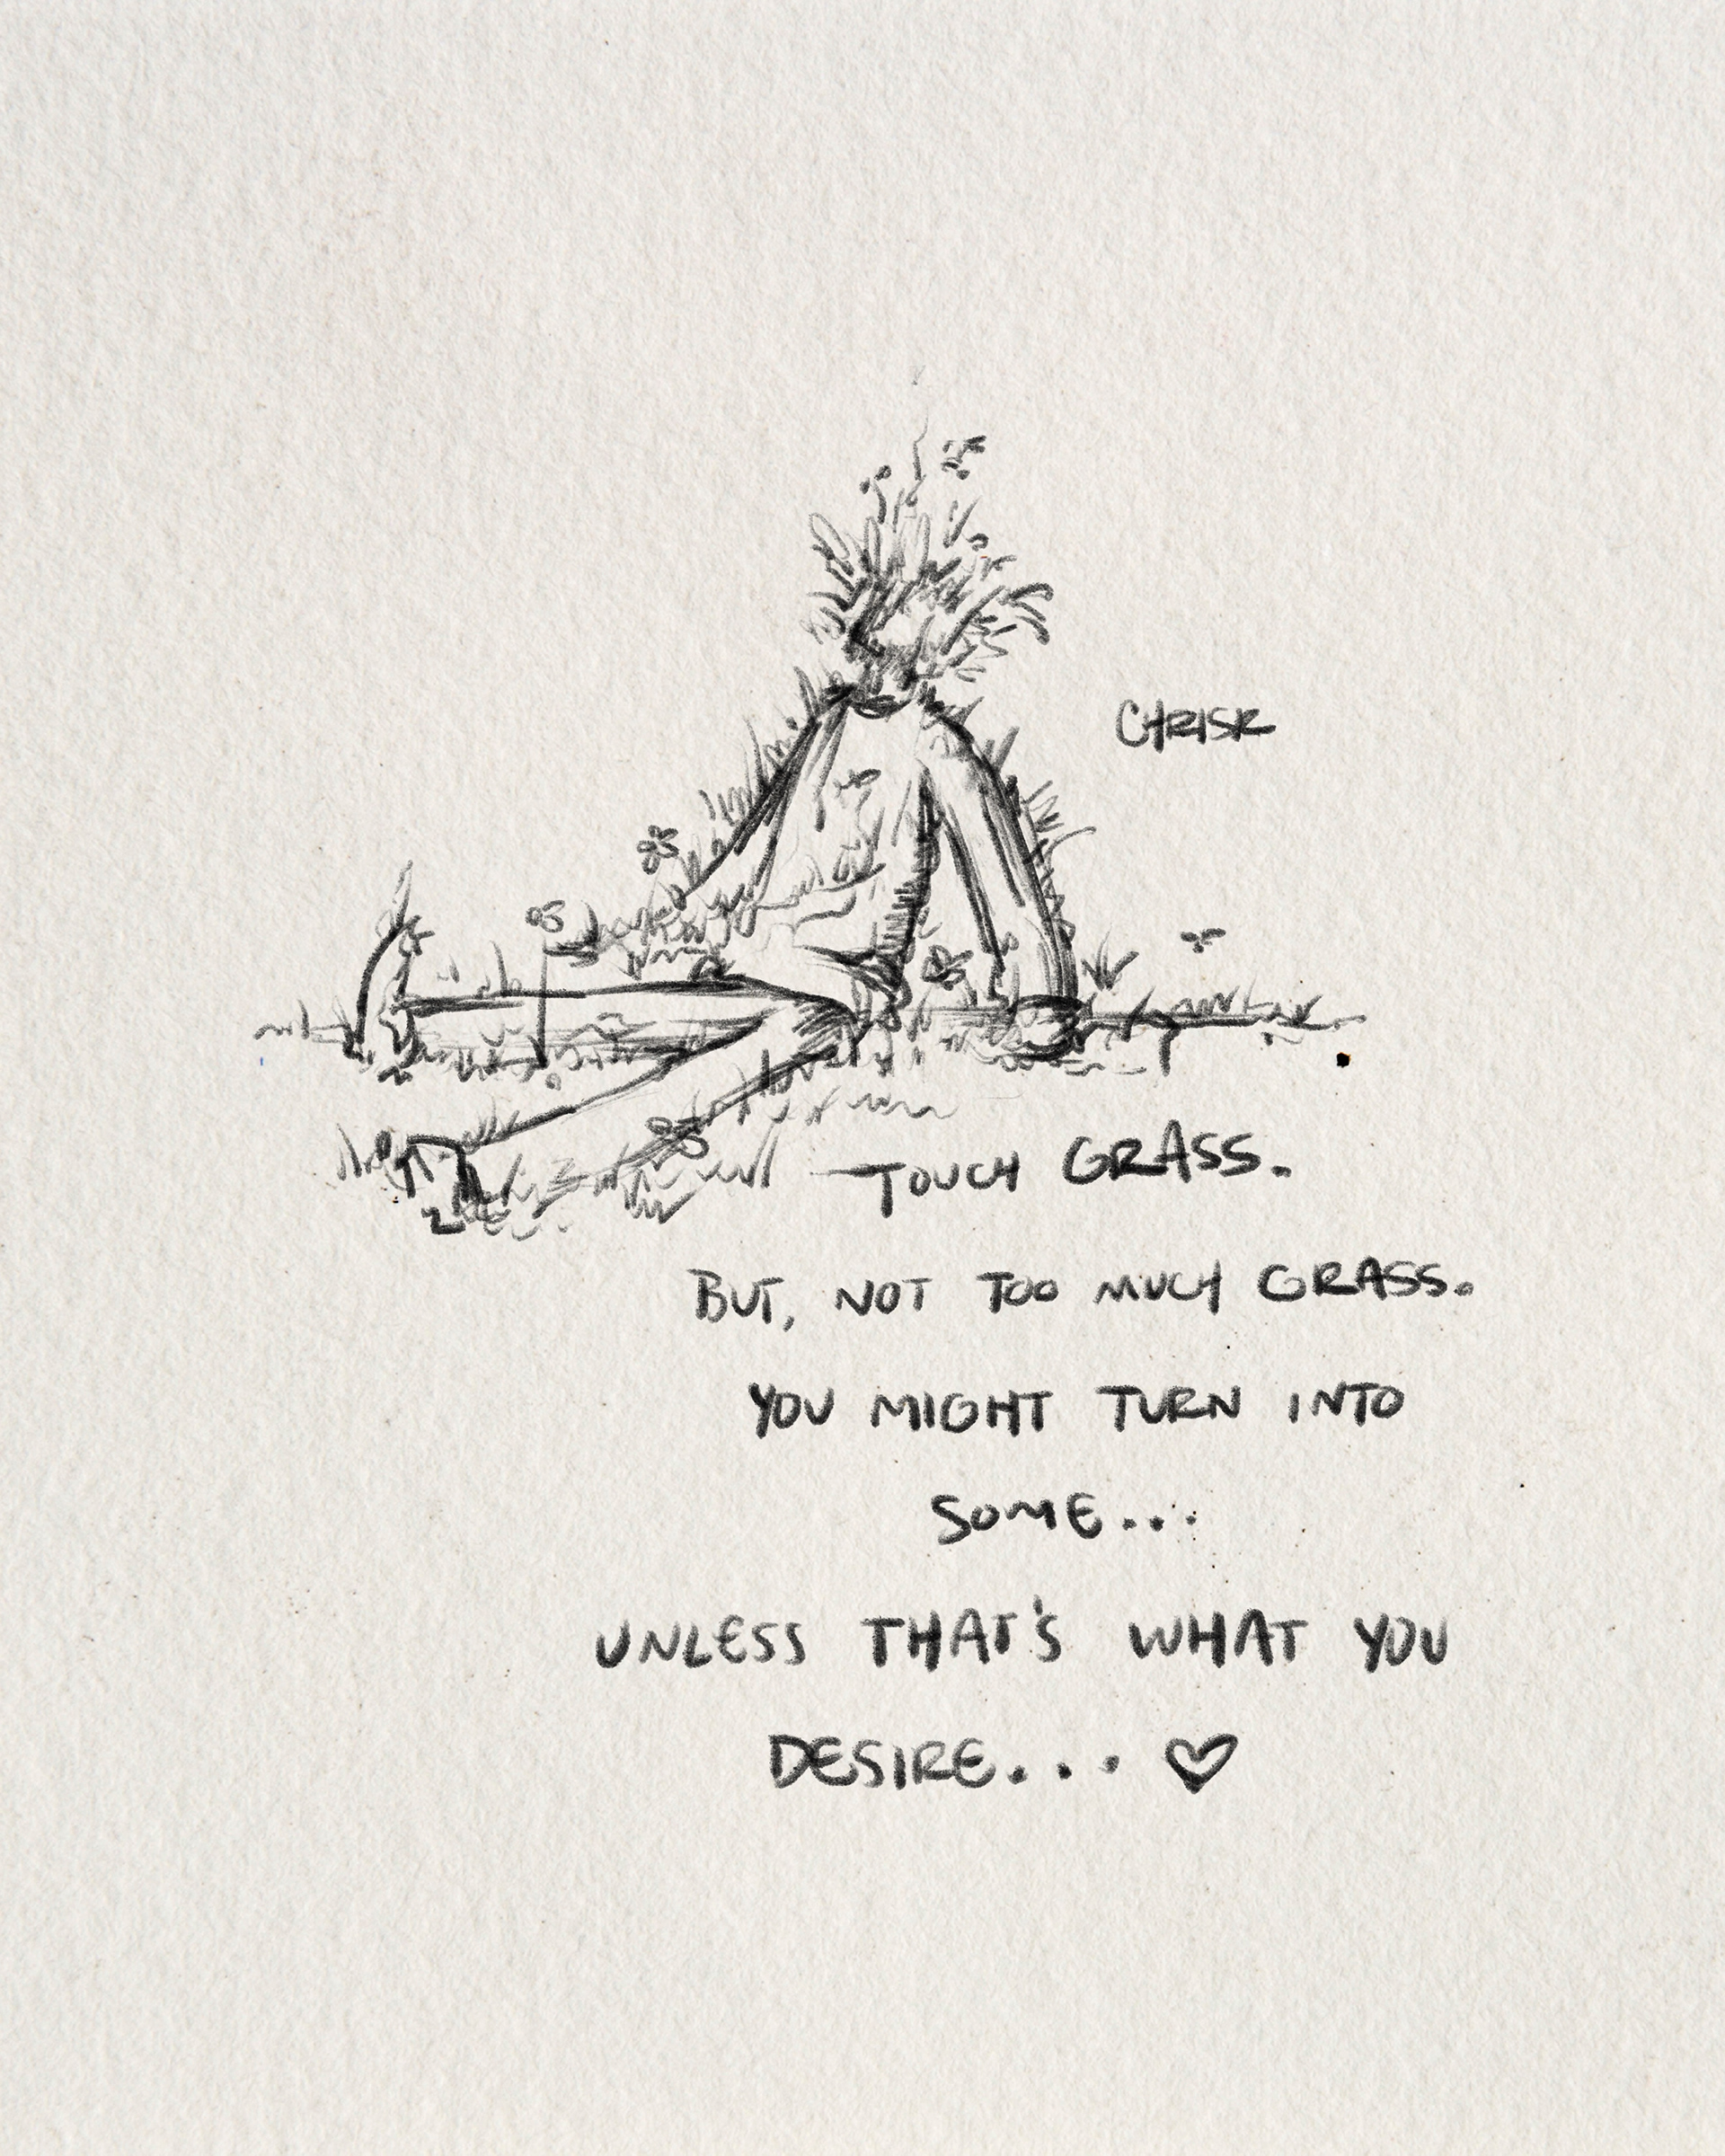 CHRISR
TOUCH GRASS.
BUT, NOT TOO MUCH GRASS.
YOU MIGHT TURN INTO
SOME...
UNLESS THAT'S WHAT YOU
DESIRE... ♡